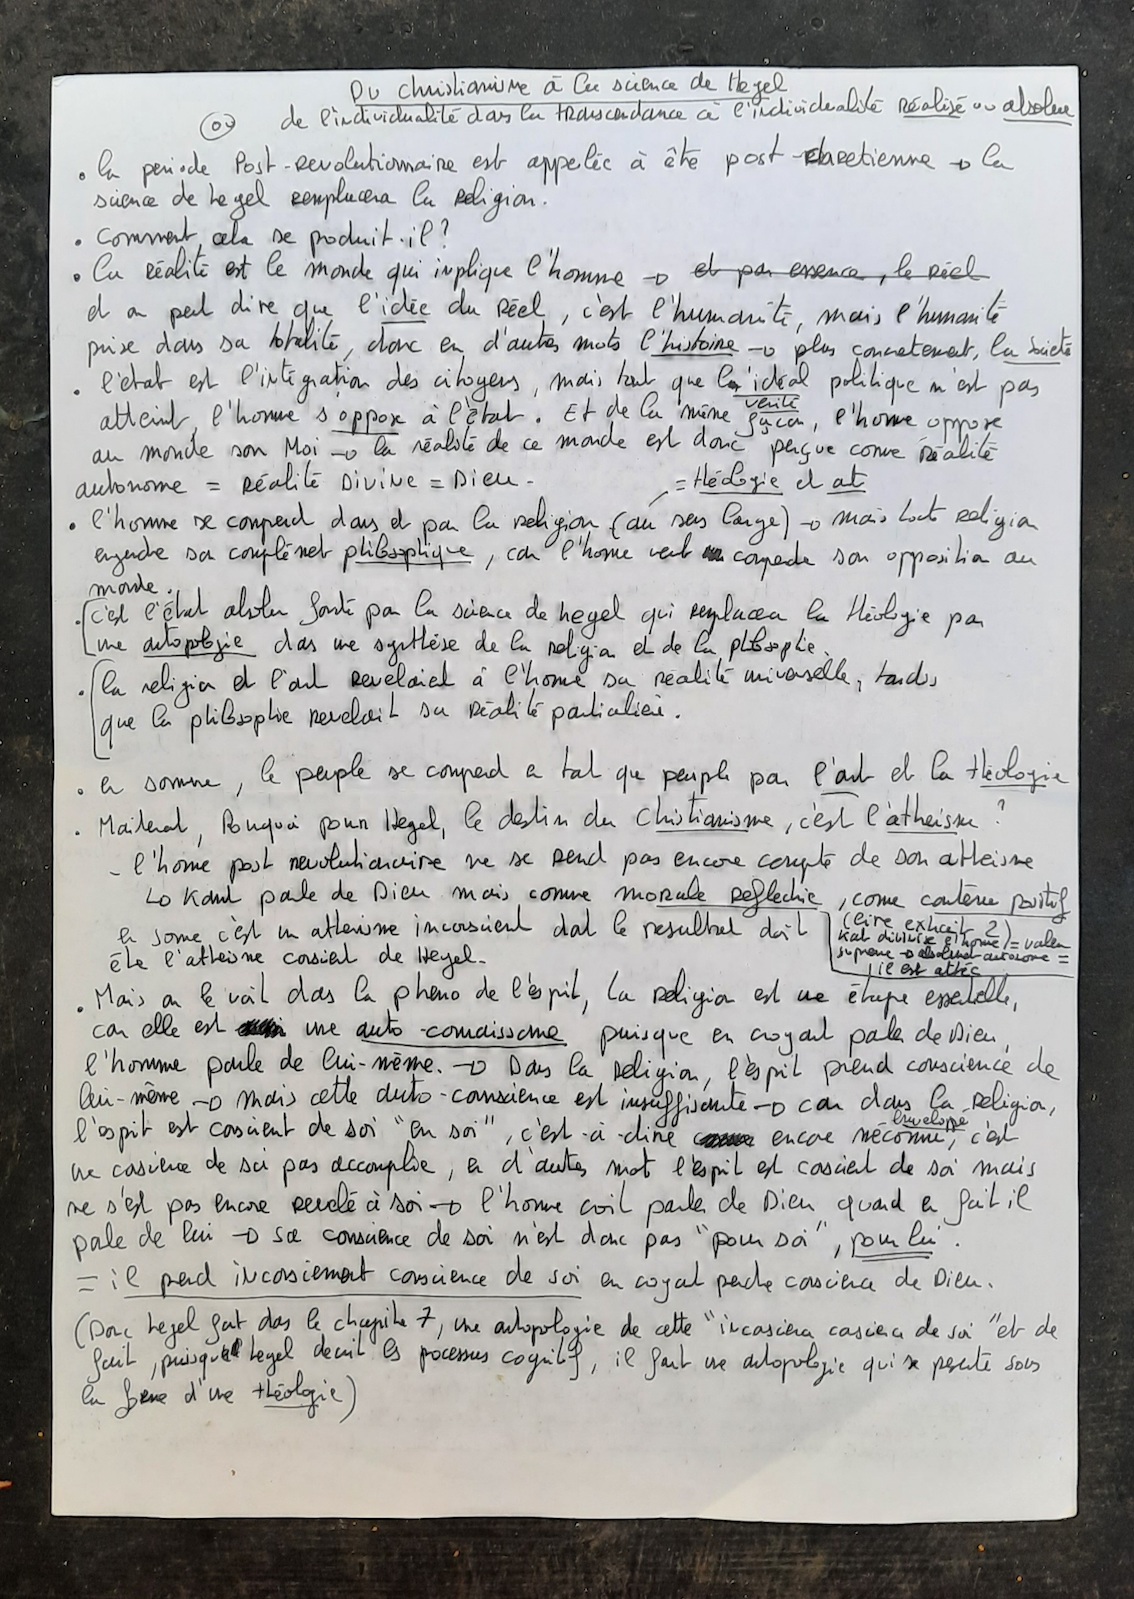 Du christianisme à la science de Hegel
ou de l'individualité dans la transcendance à l'individualité réalisé ou absolue
• la periode Post-revolutionnaire est appelée à être post-chretienne → la
science de hegel remplacera la religion.
• Comment cela se produit-il ?
• la réalité est le monde qui inplique l'homme → et par essence, le réel
et on peut dire que l'idée du réel, c'est l'humanité, mais l'humanité
prise dans sa totalité, donc en d'autres mots l'histoire → plus concretement, la Societé
• l'état est l'intégration des citoyens, mais tant que l'idéal politique n'est pas
atteint, l'homme s'oppose à l'état. Et de la même façon, l'homme oppose
verité
au monde son Moi → la réalité de ce monde est donc perçue comme Réalité
autonome = Réalité Divine = Dieu.
= théologie et art
• l'homme se comprend dans et par la religion (au sens large) → mais toute religion
engendre son complément philosophique, car l'homme veut comprendre son opposition au
monde.
• c'est l'état absolu fondé par la science de hegel qui remplacera la théologie par
une antropologie dans une synthèse de la religion et de la philosophie.
• la religion et l'art revelaient à l'homme sa réalité universelle, tandis
que la philosophie revelait sa réalité particulière.
• en somme, le peuple se comprend en tal que peuple par l'art et la théologie
• Maitenat, Pourquoi pour Hegel, le destin du Christianisme, c'est l'athéisme ?
- l'home post revolutionaire ne se rend pas encore compte de son atheisme
↳ Kant parle de Dieu mais comme morale reflechie, come contenu positif
(lire extrait 2)
Kat divinise l'home = valeur
supreme → absolumet autonome =
il est athée
en some c'est un atheisme inconscient dont le resultat doit
être l'atheisme conscient de Hegel.
• Mais on le voit das la pheno de l'esprit, la religion est une étape essentielle,
car elle est une auto-connaissance puisque en croyant parler de Dieu,
l'homme parle de lui-même. → Dans la religion, l'esprit prend conscience de
lui-même → mais cette auto-conscience est insuffisante → car dans la religion,
enveloppé
l'esprit est conscient de soi "en soi", c'est-à-dire encore méconnu, c'est
une conscience de soi pas accomplie, en d'autres mot l'esprit est conscient de soi mais
ne s'est pas encore revelé à soi → l'homme croit parler de Dieu quand en fait il
parle de lui → sa conscience de soi n'est donc pas "pour soi", pour lui.
= il prend inconsciement conscience de soi en croyant prendre conscience de Dieu.
(Donc hegel fait das le chapitre 7, une antropologie de cette "inconsciente conscience de soi" et de
fait, puisque hegel decrit les processus cognitif, il fait une antropologie qui se presente sous
la forme d'une théologie)